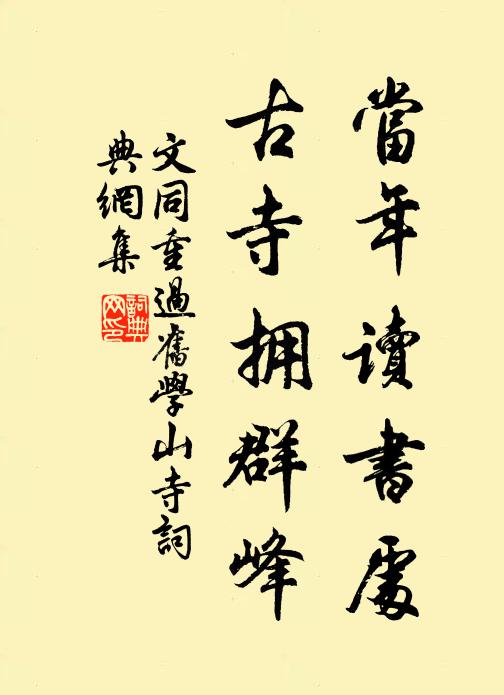 當年讀書處
古寺拥群峰
文同重過舊學山寺詞
典網集
詞典
网印